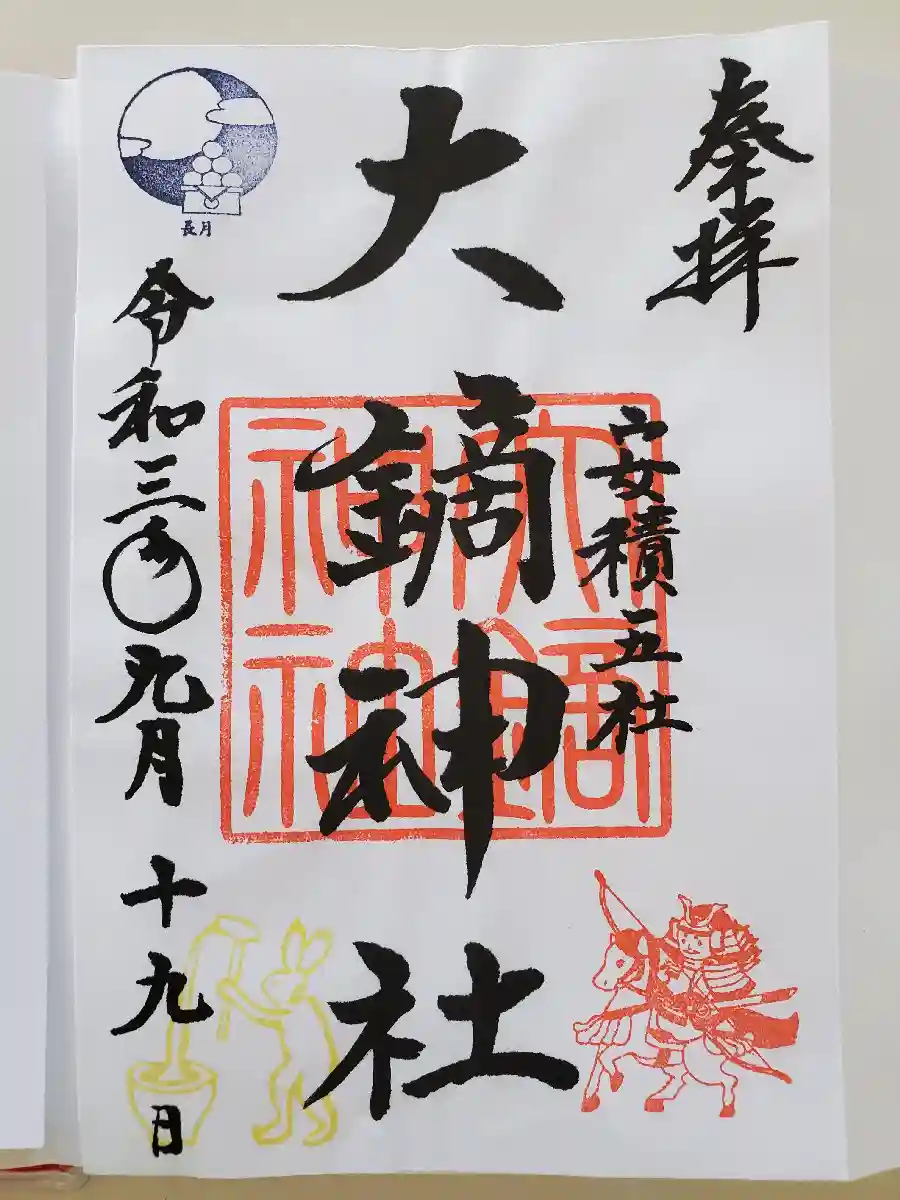 奉拝
安積五社
大鏑神社
大鏑神社
長月
令和三年九月十九日